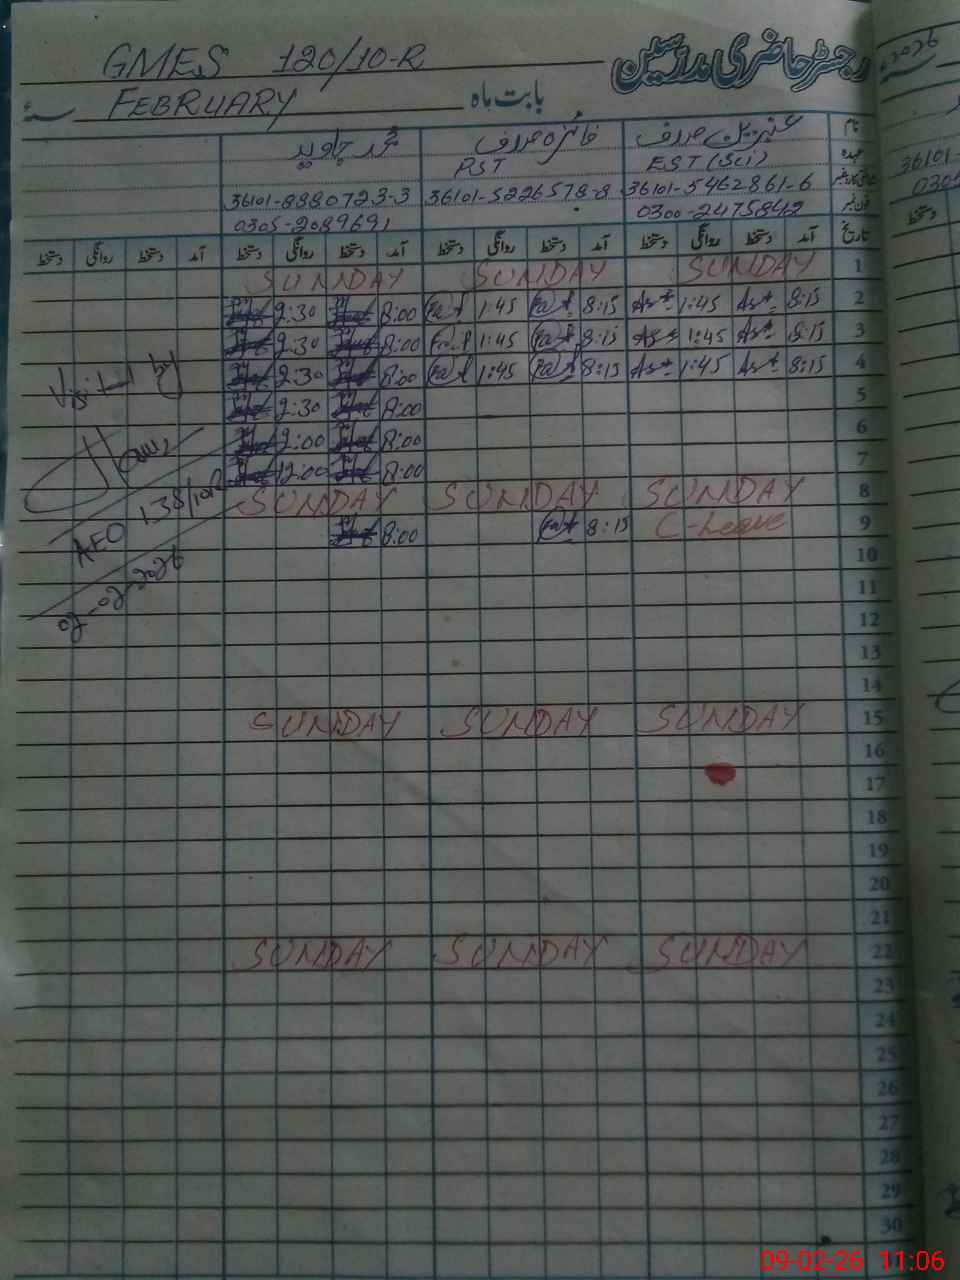 رجسٹر حاضری مدرسین
GMES 120/10-R
بابت ماہ FEBRUARY سنہٴ
نام عنبرین صدف فائزہ صدف محمد جاوید
عہدہ EST (Sci) PST
36101-5462861-6 36101-5226578-8 36101-8880723-3
فون نمبر 0300-2475842 0305-2089691
تاریخ آمد دستخط روانگی دستخط آمد دستخط روانگی دستخط آمد دستخط روانگی دستخط آمد دستخط روانگی دستخط
1 SUNDAY SUNDAY SUNDAY
2 8:15 1:45 8:15 1:45 8:00 2:30
3 8:15 1:45 8:15 1:45 8:00 2:30
4 8:15 1:45 8:15 1:45 8:00 2:30
5 8:00 2:30
6 8:00 2:00
7 8:00 12:00
8 SUNDAY SUNDAY SUNDAY
9 C-Leave 8:15 8:00
10
11
12
13
14
15 SUNDAY SUNDAY SUNDAY
16
17
18
19
20
21
22 SUNDAY SUNDAY SUNDAY
23
24
25
26
27
28
29
30
Visited by
AEO 138/10R
09-02-26 11:06
2026
36101-
0305
دستخط